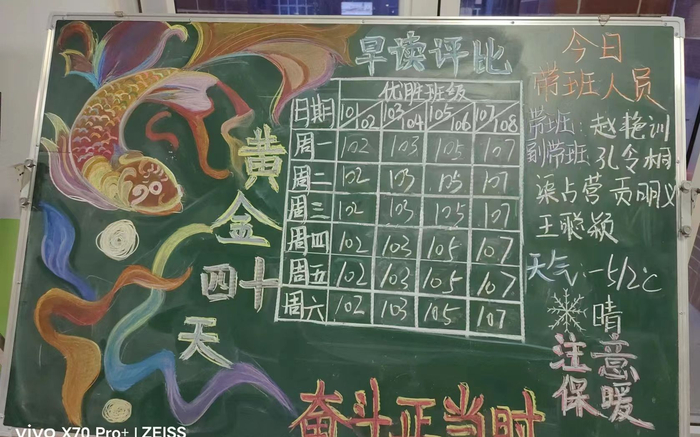 早读评比
优胜班级
日期 101/102 103/104 105/106 107/108
周一 102 103 105 107
周二 102 103 105 107
周三 102 103 105 107
周四 102 103 105 107
周五 102 103 105 107
周六 102 103 105 107
黄金四十天
今日
带班人员
带班:赵艳训
副带班:孔令桐
渠占营 贡明义
王聪颖
天气:-5/2℃
晴
注意
保暖
奋斗正当时
vivo X70 Pro+ | ZEISS